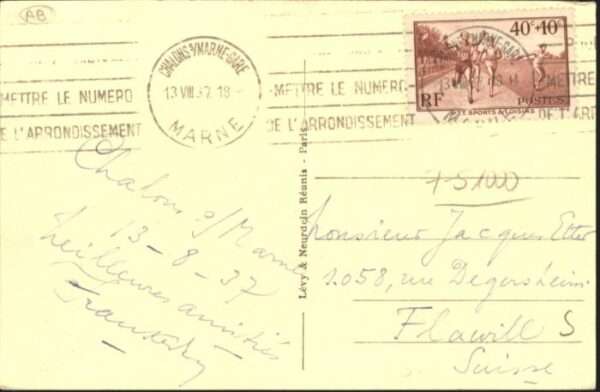 AB
CHALONS S/MARNE-GARE
13 VIII 37 18
MARNE
METTRE LE NUMERO
DE L'ARRONDISSEMENT
-METTRE LE NUMERO
DE L'ARRONDISSEMENT
METTRE
DE L'ARR
40c+10c
RF
POSTES
SPORTS & LOISIRS
Chalons s/Marne
13-8-37
Meilleures amitiés
Lévy & Neurdein Réunis - Paris
Monsieur Jacques Etter
1058, rue Degersheim
Flawill S
Suisse